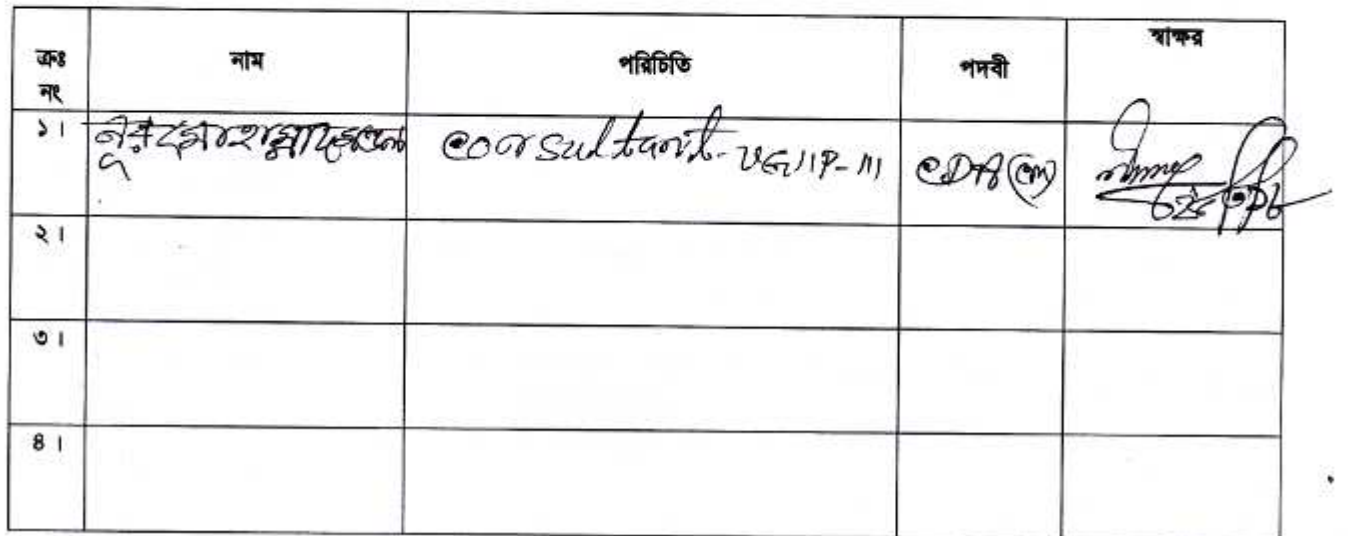 ক্রঃ নং নাম পরিচিতি পদবী স্বাক্ষর
১। নূর মোহাম্মাদ Consultant-UGIIP-III CDA
২।
৩।
৪।